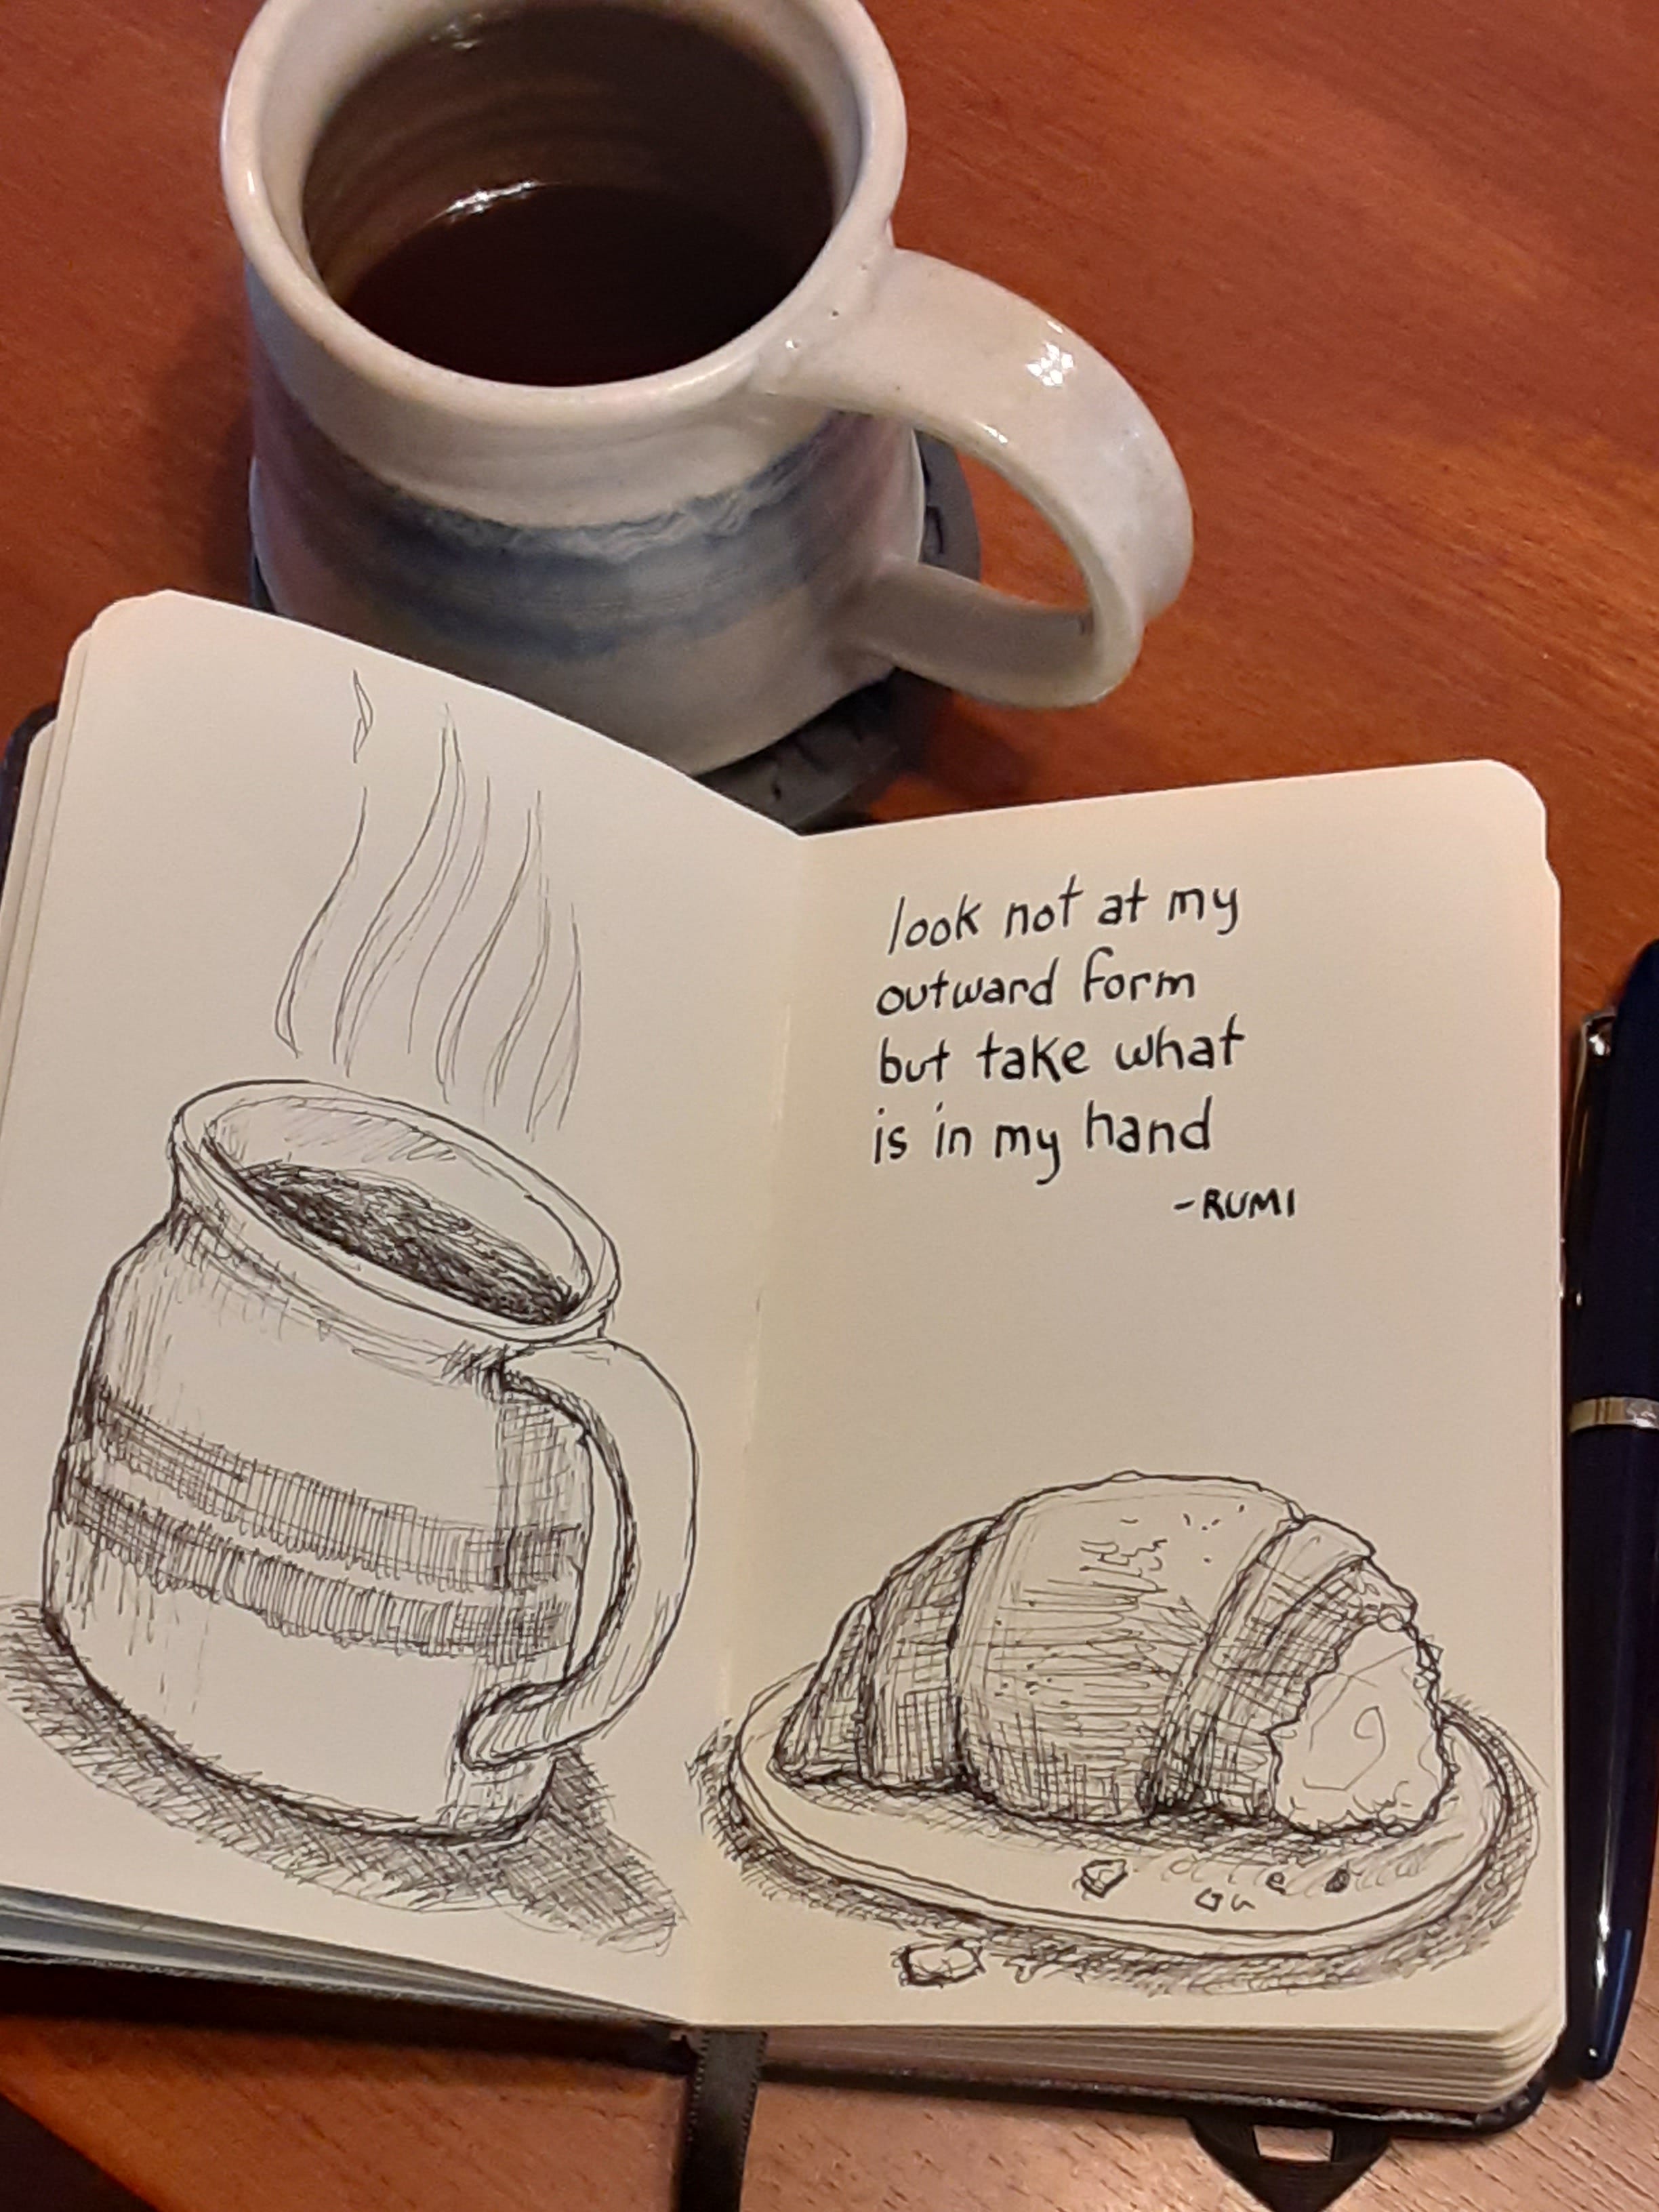 look not at my
outward form
but take what
is in my hand
-RUMI